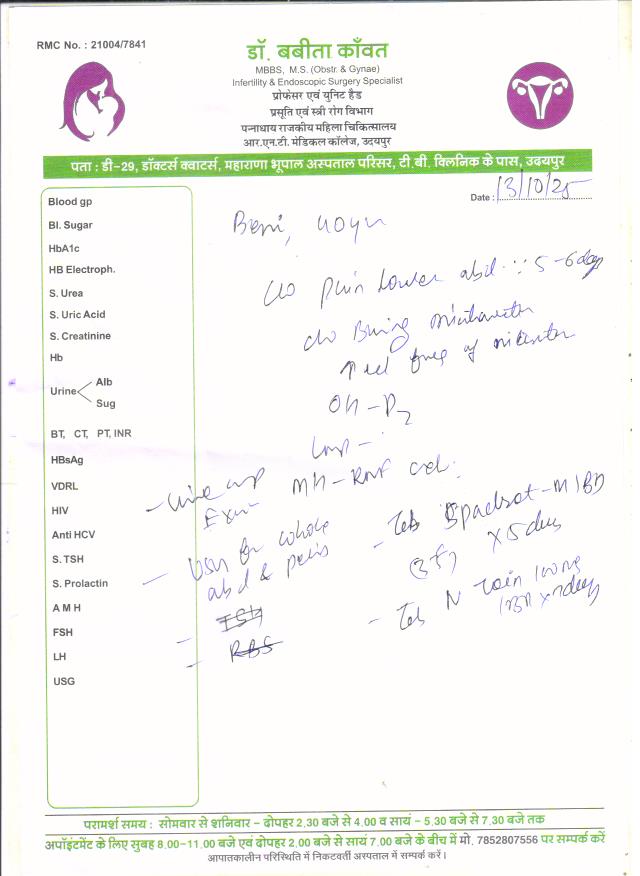 RMC No. : 21004/7841
डॉ. बबीता काँवत
MBBS, M.S. (Obstr. & Gynae)
Infertility & Endoscopic Surgery Specialist
प्रोफेसर एवं यूनिट हैड
प्रसूति एवं स्त्री रोग विभाग
पन्नाधाय राजकीय महिला चिकित्सालय
आर.एन.टी. मेडिकल कॉलेज, उदयपुर
पता : डी-29, डॉक्टर्स क्वाटर्स, महाराणा भूपाल अस्पताल परिसर, टी.बी. क्लिनिक के पास, उदयपुर
Date : 13/10/25
Blood gp
Bl. Sugar
HbA1c
HB Electroph.
S. Urea
S. Uric Acid
S. Creatinine
Hb
Urine Alb
Sug
BT, CT, PT, INR
HBsAg
VDRL
HIV
Anti HCV
S. TSH
S. Prolactin
A M H
FSH
LH
USG
c/o pain lower abd. 5-6 days
c/o
of
LMP -
MH -
USG for whole
abd & pelvis
TSH
RBS
- Tab
x 5 days
- Tab N
x 7 days
परामर्श समय : सोमवार से शनिवार – दोपहर 2.30 बजे से 4.00 व सायं – 5.30 बजे से 7.30 बजे तक
अपॉइंटमेंट के लिए सुबह 8.00-11.00 बजे एवं दोपहर 2.00 बजे से सायं 7.00 बजे के बीच में मो. 7852807556 पर सम्पर्क करें
आपातकालीन परिस्थिति में निकटवर्ती अस्पताल में सम्पर्क करें।